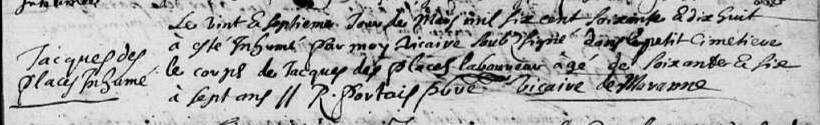 Le vint & septieme Jour de Mars mil six cent soixante & dix huit
Jacques des
places Inhumé
à esté Inhumé par moy Vicaire soub signé dans le petit Cimetiere
le corps de Jacques des places laboureur àgé de soixante & six
à sept ans // R. Portais pbre Vicaire de Maranne